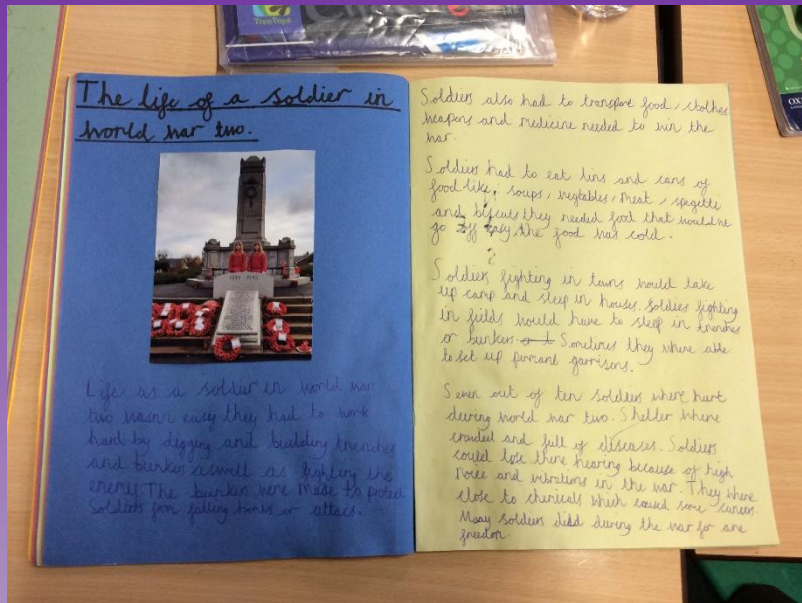 TreeTops
OX
The life of a soldier in
world war two.
1939-1945
Life as a soldier in world war
two wasn't easy they had to work
hard by digging and building trenches
and bunkers aswell as fighting the
enemy. The bunker were made to protect
Soldiers from falling bombs or attacs.
Soldiers also had to transport food, clothes
weapons and medicine needed to win the
war.
Soldiers had to eat tins and cans of
food like, soups, vegtables, meat, spagetti
and biscuits they needed food that wouldn't
go off easy, the food was cold.
Soldiers fighting in towns would take
up camp and sleep in houses. Soldiers fighting
in fields would have to sleep in trenches
or bunkers. Sometimes they where able
to set up garrisons.
Seven out of ten soldiers where hurt
during world war two. Shelter where
crowded and full of diseases. Soldiers
could lose there hearing because of high
noice and vibrations in the war. They where
close to chemicals which caused some cancers.
Many soldiers died during the war for are
freedom